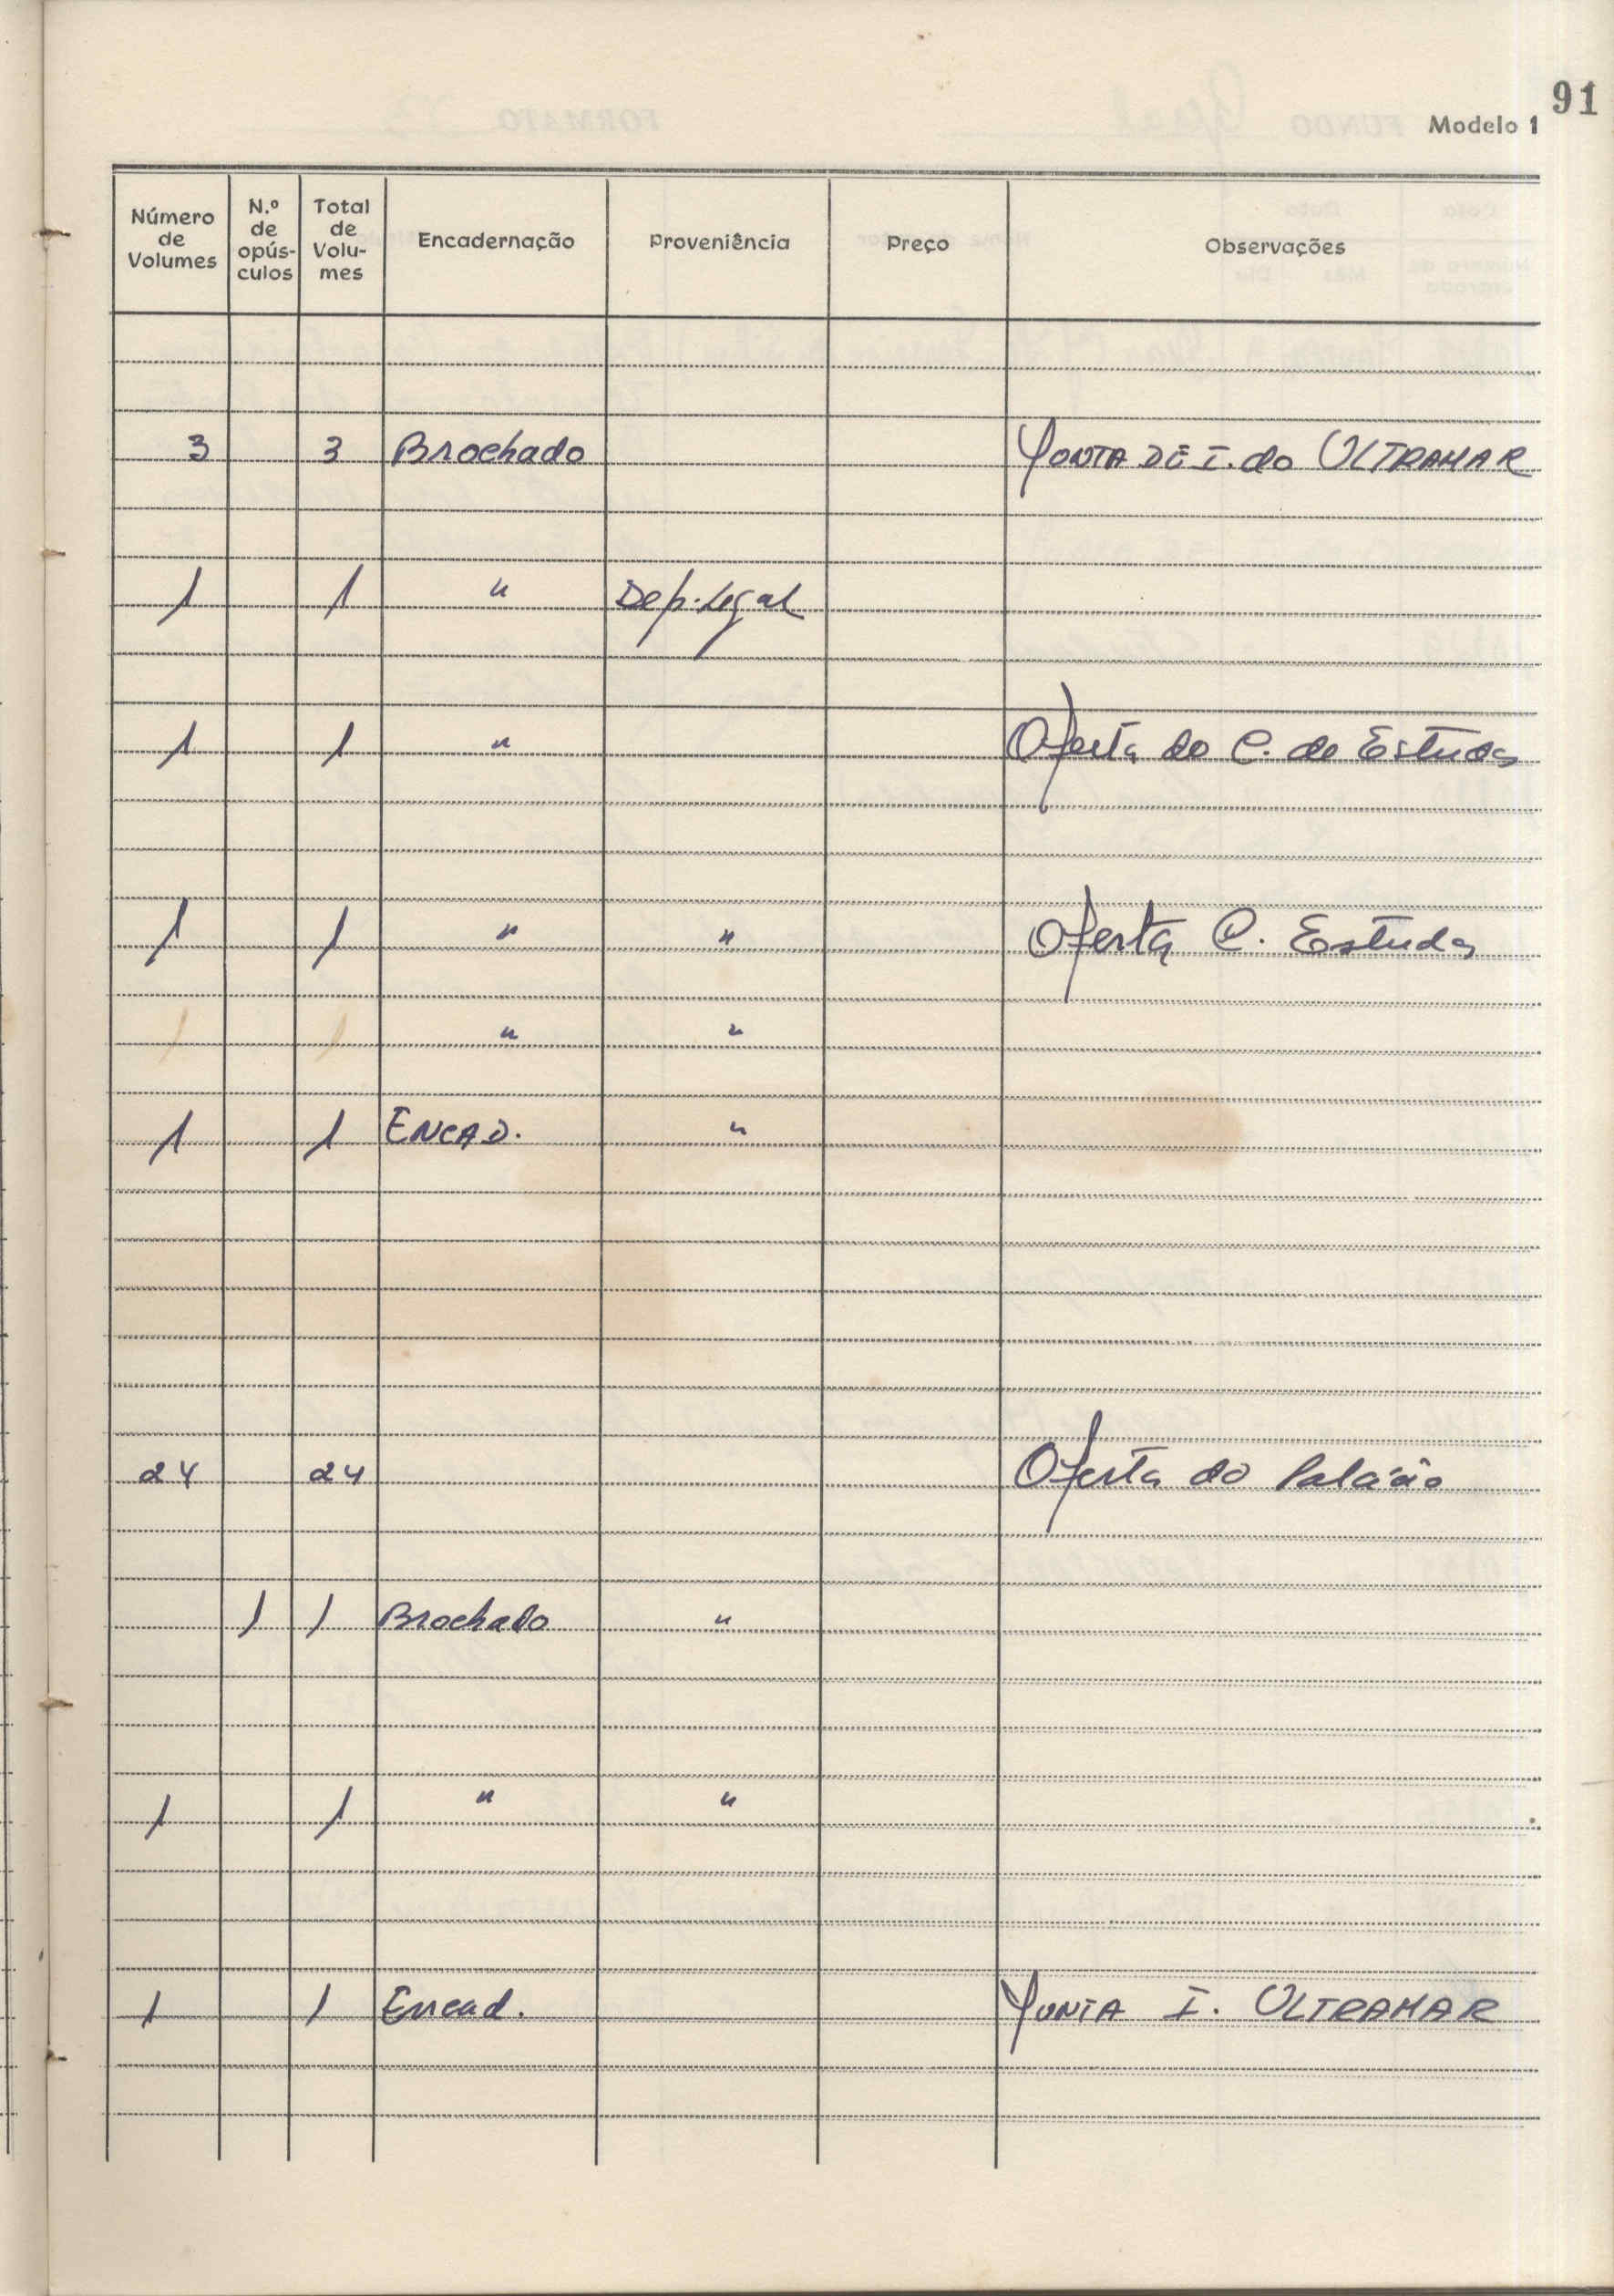 91
Modelo 1
Número de Volumes | N.º de opús-culos | Total de Volu-mes | Encadernação | Proveniência | Preço | Observações
3 3 Brochado JONTA DE I. do ULTRAMAR
1 1 " Dep. Legal
1 1 " Oferta do C. de Estudos
1 1 " " Oferta C. Estudos
1 1 " "
1 1 ENCAD. "
24 24 Oferta do
1 1 Brochado "
1 1 " "
1 1 Encad. JUNTA I. ULTRAMAR